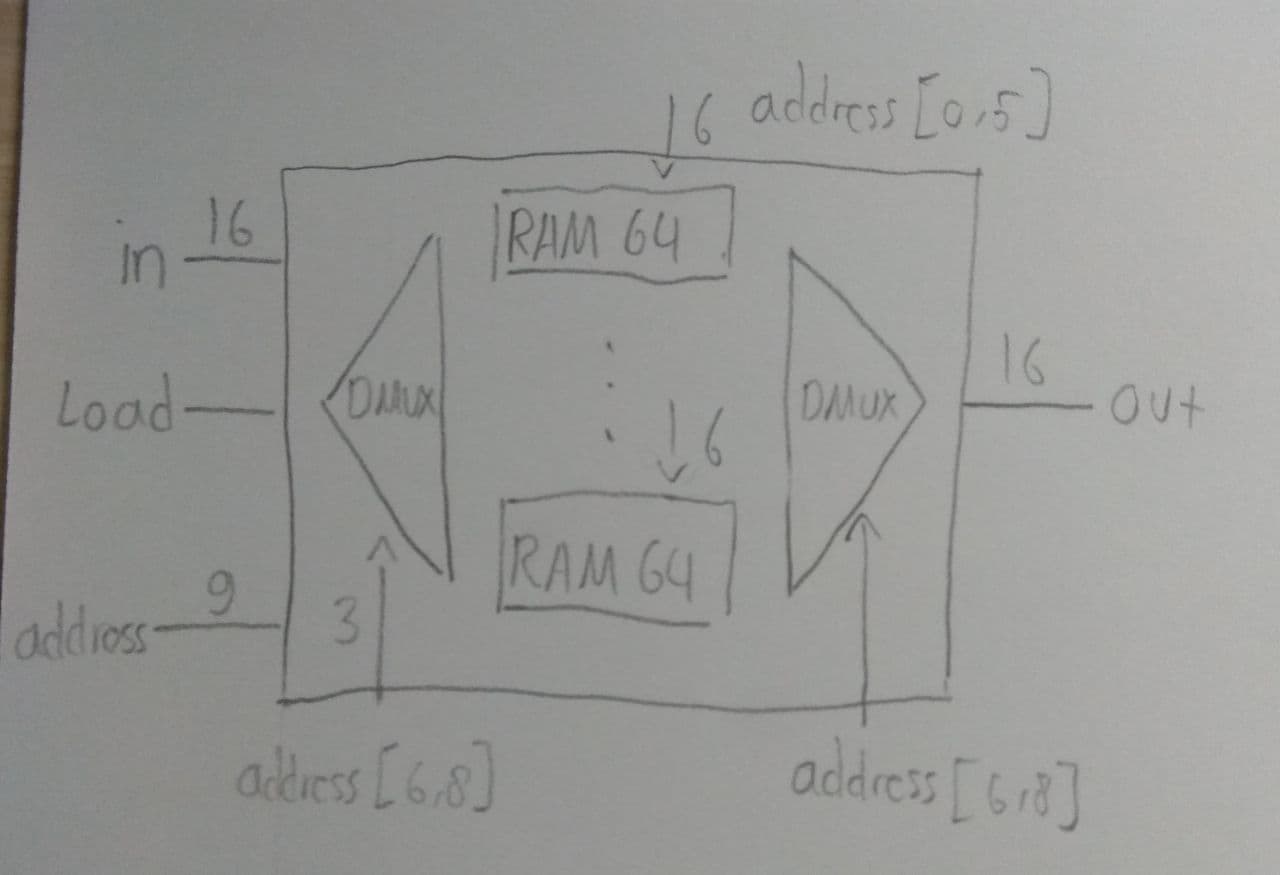 6 address [0,5]
in 16
RAM 64
Load
DMUX
DMUX
16
out
6
RAM 64
address 9
3
address [6,8]
address [6,8]